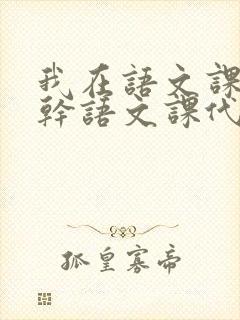 我在語文課
幹語文課代
孤皇寡帝